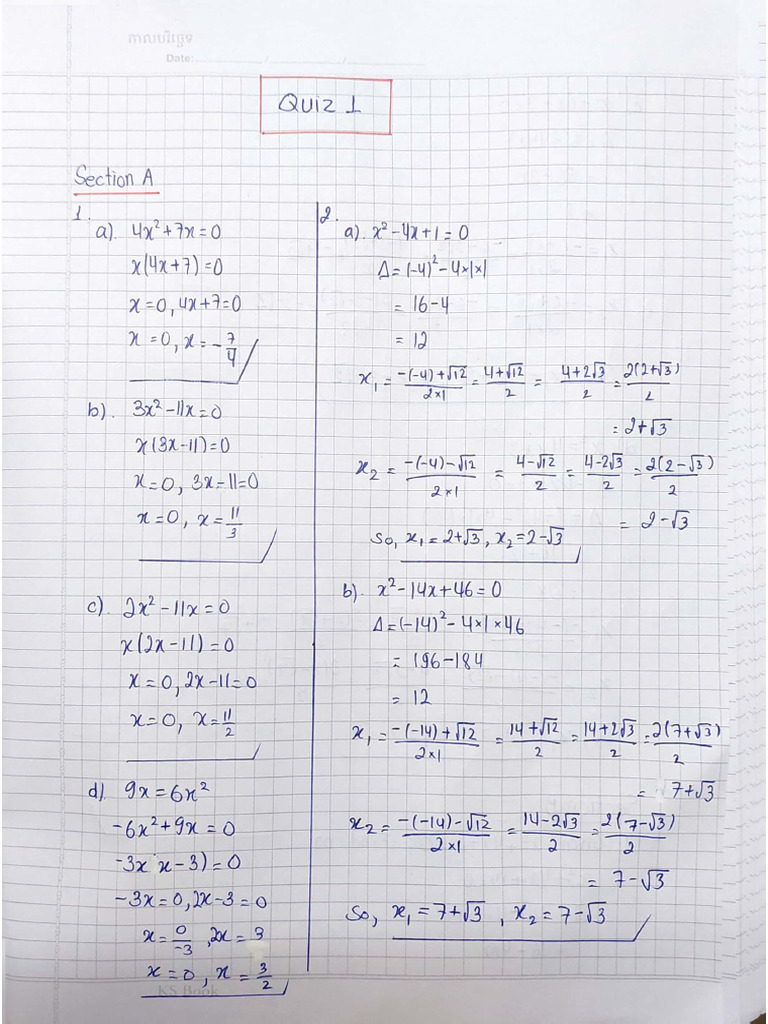 កាលបរិច្ឆេទ
Date: / /
QUIZ 1
Section A
1.
a). 4x² + 7x = 0
x(4x + 7) = 0
x = 0, 4x + 7 = 0
x = 0, x = -7/4
b). 3x² - 11x = 0
x(3x - 11) = 0
x = 0, 3x - 11 = 0
x = 0, x = 11/3
c). 2x² - 11x = 0
x(2x - 11) = 0
x = 0, 2x - 11 = 0
x = 0, x = 11/2
d). 9x = 6x²
-6x² + 9x = 0
-3x x - 3) = 0
-3x = 0, 2x - 3 = 0
x = 0/-3, 2x = 3
x = 0, x = 3/2
KS Book
2.
a). x² - 4x + 1 = 0
Δ = (-4)² - 4×1×1
= 16 - 4
= 12
x₁ = (-(-4) + √12)/(2×1) = (4 + √12)/2 = (4 + 2√3)/2 = 2(2 + √3)/2
= 2 + √3
x₂ = (-(-4) - √12)/(2×1) = (4 - √12)/2 = (4 - 2√3)/2 = 2(2 - √3)/2
= 2 - √3
So, x₁ = 2 + √3, x₂ = 2 - √3
b). x² - 14x + 46 = 0
Δ = (-14)² - 4×1×46
= 196 - 184
= 12
x₁ = (-(-14) + √12)/(2×1) = (14 + √12)/2 = (14 + 2√3)/2 = 2(7 + √3)/2
= 7 + √3
x₂ = (-(-14) - √12)/(2×1) = (14 - 2√3)/2 = 2(7 - √3)/2
= 7 - √3
So, x₁ = 7 + √3, x₂ = 7 - √3